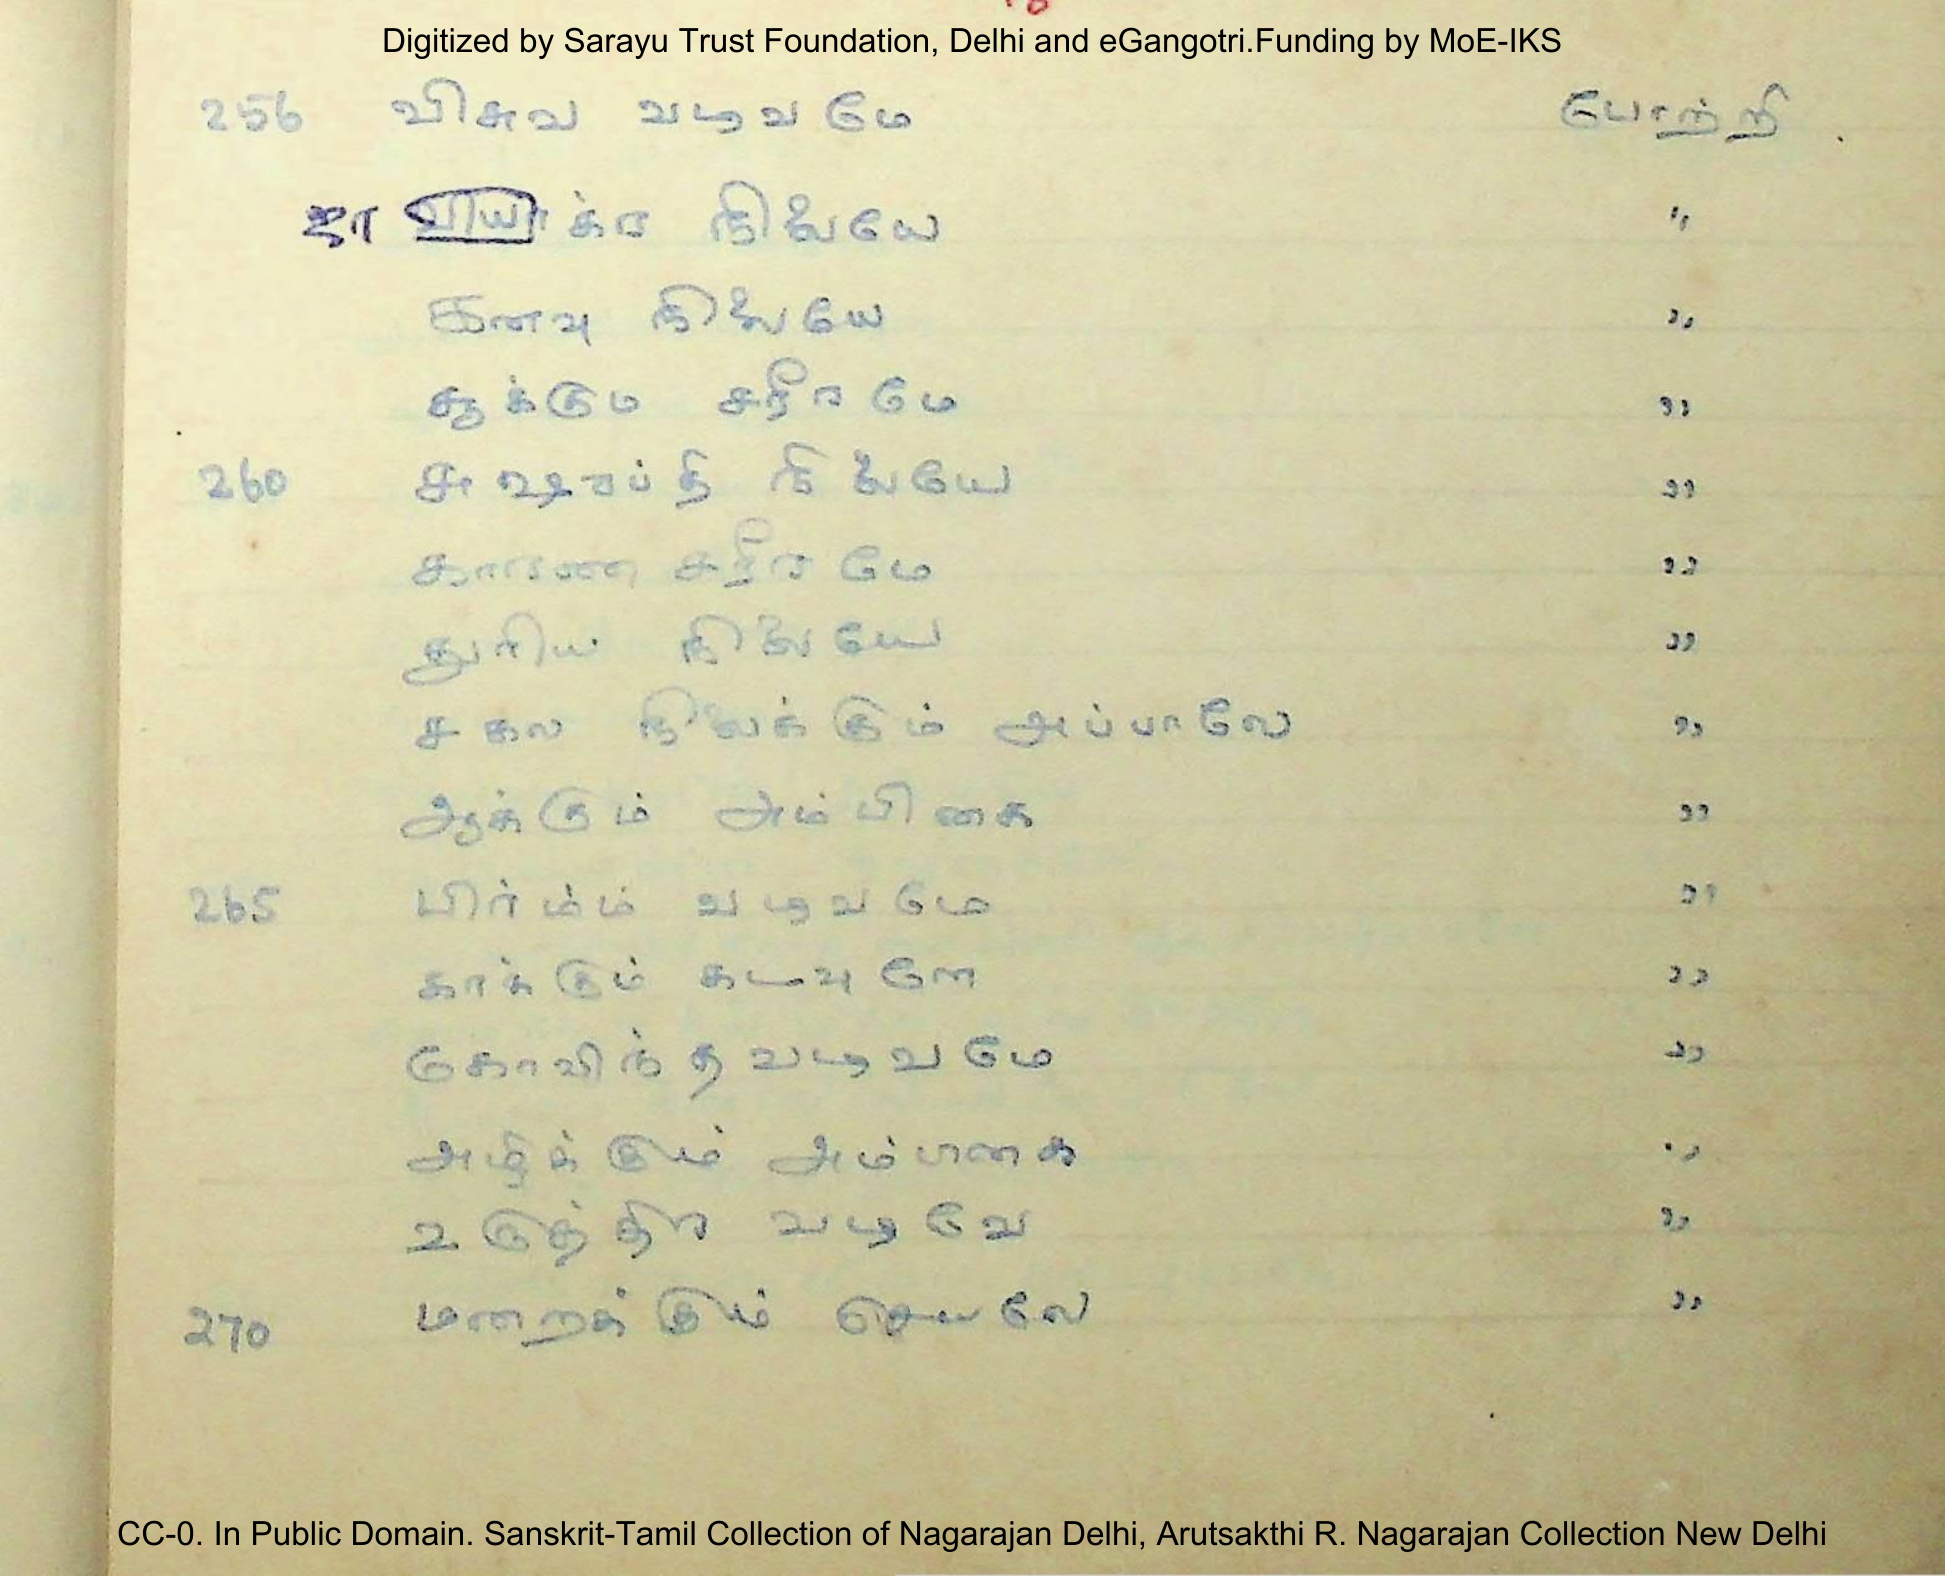 18
Digitized by Sarayu Trust Foundation, Delhi and eGangotri.Funding by MoE-IKS
256 விசுவ வடிவமே போற்றி .
ஜா வியாக்ர நிலையே "
கனவு நிலையே "
ஆக்கும சரீரமே "
260 சுஷுப்தி நிலையே "
காரண சரீரமே "
துரிய நிலையே "
சகல நிலைக்கும் அப்பாலே "
ஆக்கும் அம்பிகை "
265 பிர்ம்ம் வடிவமே "
காக்கும் கடவுளே "
கோவிந்த வடிவமே "
அழிக்கும் அம்பிகை "
உருத்திர வடிவே "
270 மறைக்கும் செயலே "
CC-0. In Public Domain. Sanskrit-Tamil Collection of Nagarajan Delhi, Arutsakthi R. Nagarajan Collection New Delhi